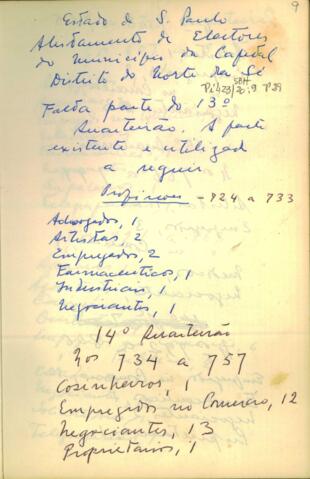 9
Estado de S. Paulo
Alistamento de Electores
do Municipio da Capital
Distrito do Norte da Sé
SBH
Pi 423/20:9 P29
Falta parte do 13º
Quarteirão. A parte
existente e utilizada
a seguir
Profissões - 724 a 733
Advogados, 1
Artistas, 2
Empregados, 2
Farmaceuticos, 1
Industriais, 1
Negociantes, 1
14º Quarteirão
Nos 734 a 757
Cosinheiros, 1
Empregados no Comercio, 12
Negociantes, 13
Proprietarios, 1